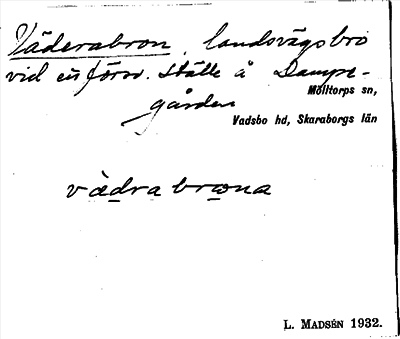 Väderabron, landsvägsbro
vid ett försv. ställe å Damps-
gården
Mölltorps sn,
Vadsbo hd, Skaraborgs län
vädra brona
L. MADSÉN 1932.